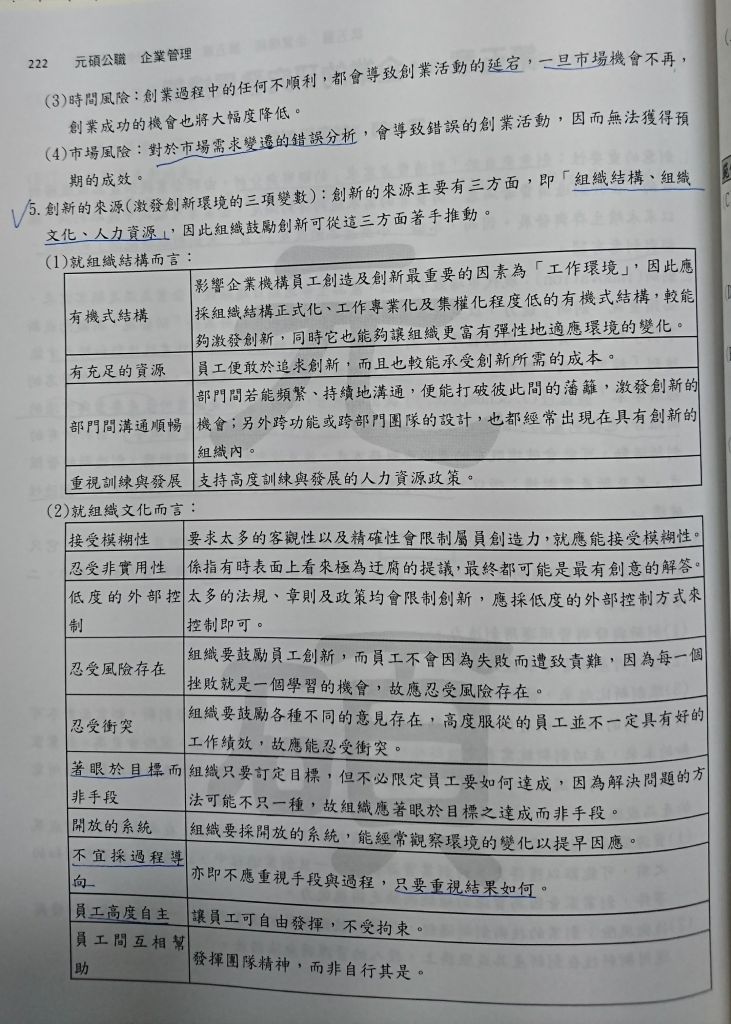 222 元碩公職 企業管理
(3)時間風險：創業過程中的任何不順利，都會導致創業活動的延宕，一旦市場機會不再，
創業成功的機會也將大幅度降低。
(4)市場風險：對於市場需求變遷的錯誤分析，會導致錯誤的創業活動，因而無法獲得預
期的成效。
5.創新的來源(激發創新環境的三項變數)：創新的來源主要有三方面，即「組織結構、組織
文化、人力資源」，因此組織鼓勵創新可從這三方面著手推動。
(1)就組織結構而言：
影響企業機構員工創造及創新最重要的因素為「工作環境」，因此應
有機式結構 採組織結構正式化、工作專業化及集權化程度低的有機式結構，較能
夠激發創新，同時它也能夠讓組織更富有彈性地適應環境的變化。
有充足的資源 員工便敢於追求創新，而且也較能承受創新所需的成本。
部門間若能頻繁、持續地溝通，便能打破彼此間的藩籬，激發創新的
部門間溝通順暢 機會；另外跨功能或跨部門團隊的設計，也都經常出現在具有創新的
組織內。
重視訓練與發展 支持高度訓練與發展的人力資源政策。
(2)就組織文化而言：
接受模糊性 要求太多的客觀性以及精確性會限制屬員創造力，就應能接受模糊性。
忍受非實用性 係指有時表面上看來極為迂腐的提議，最終都可能是最有創意的解答。
低度的外部控 太多的法規、章則及政策均會限制創新，應採低度的外部控制方式來
制 控制即可。
忍受風險存在 組織要鼓勵員工創新，而員工不會因為失敗而遭致責難，因為每一個
挫敗就是一個學習的機會，故應忍受風險存在。
忍受衝突 組織要鼓勵各種不同的意見存在，高度服從的員工並不一定具有好的
工作績效，故應能忍受衝突。
著眼於目標而 組織只要訂定目標，但不必限定員工要如何達成，因為解決問題的方
非手段 法可能不只一種，故組織應著眼於目標之達成而非手段。
開放的系統 組織要採開放的系統，能經常觀察環境的變化以提早因應。
不宜採過程導 亦即不應重視手段與過程，只要重視結果如何。
向
員工高度自主 讓員工可自由發揮，不受拘束。
員工間互相幫 發揮團隊精神，而非自行其是。
助